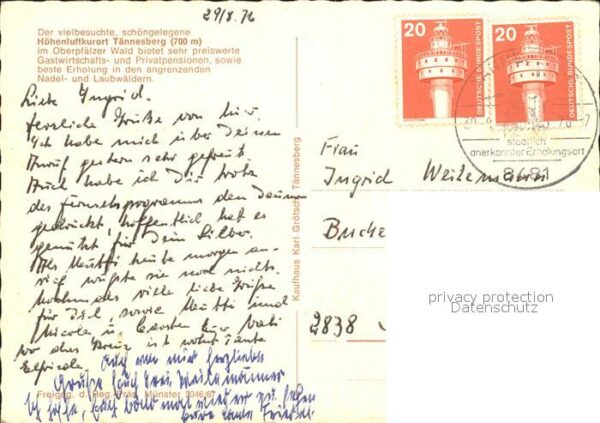 29/8. 76
Der vielbesuchte, schöngelegene
Höhenluftkurort Tännesberg (700 m)
im Oberpfälzer Wald bietet sehr preiswerte
Gastwirtschafts- und Privatpensionen, sowie
beste Erholung in den angrenzenden
Nadel- und Laubwäldern.
Liebe Ingrid.
Herzliche Grüße von hier.
Ich habe mich über Deinen
Anruf gestern sehr gefreut.
Auch habe ich Dir
des Fernsehprogramms den Daumen
gedrückt, hoffentlich hat es
genützt für Dein Silber.
Als Mutti heute morgen an-
rief wußte sie noch nichts.
Nochmals viele liebe Grüße
für Dich, sowie Mutti und
Nicole u.
wo das Kreuz ist wohnt Tante
Elfriede.
Auch von mir herzliche
Grüße
Ich hoffe, Euch bald mal wieder zu sehen
Eure Tante
Freigeg. d. Reg. Präs. Münster 3046/67
Kaufhaus Karl Grötsch Tännesberg
20
DEUTSCHE BUNDESPOST
20
DEUTSCHE BUNDESPOST
staatlich
anerkannter Erholungsort
8481
Frau
Ingrid Weilemann
Bucke
2838
privacy protection
Datenschutz